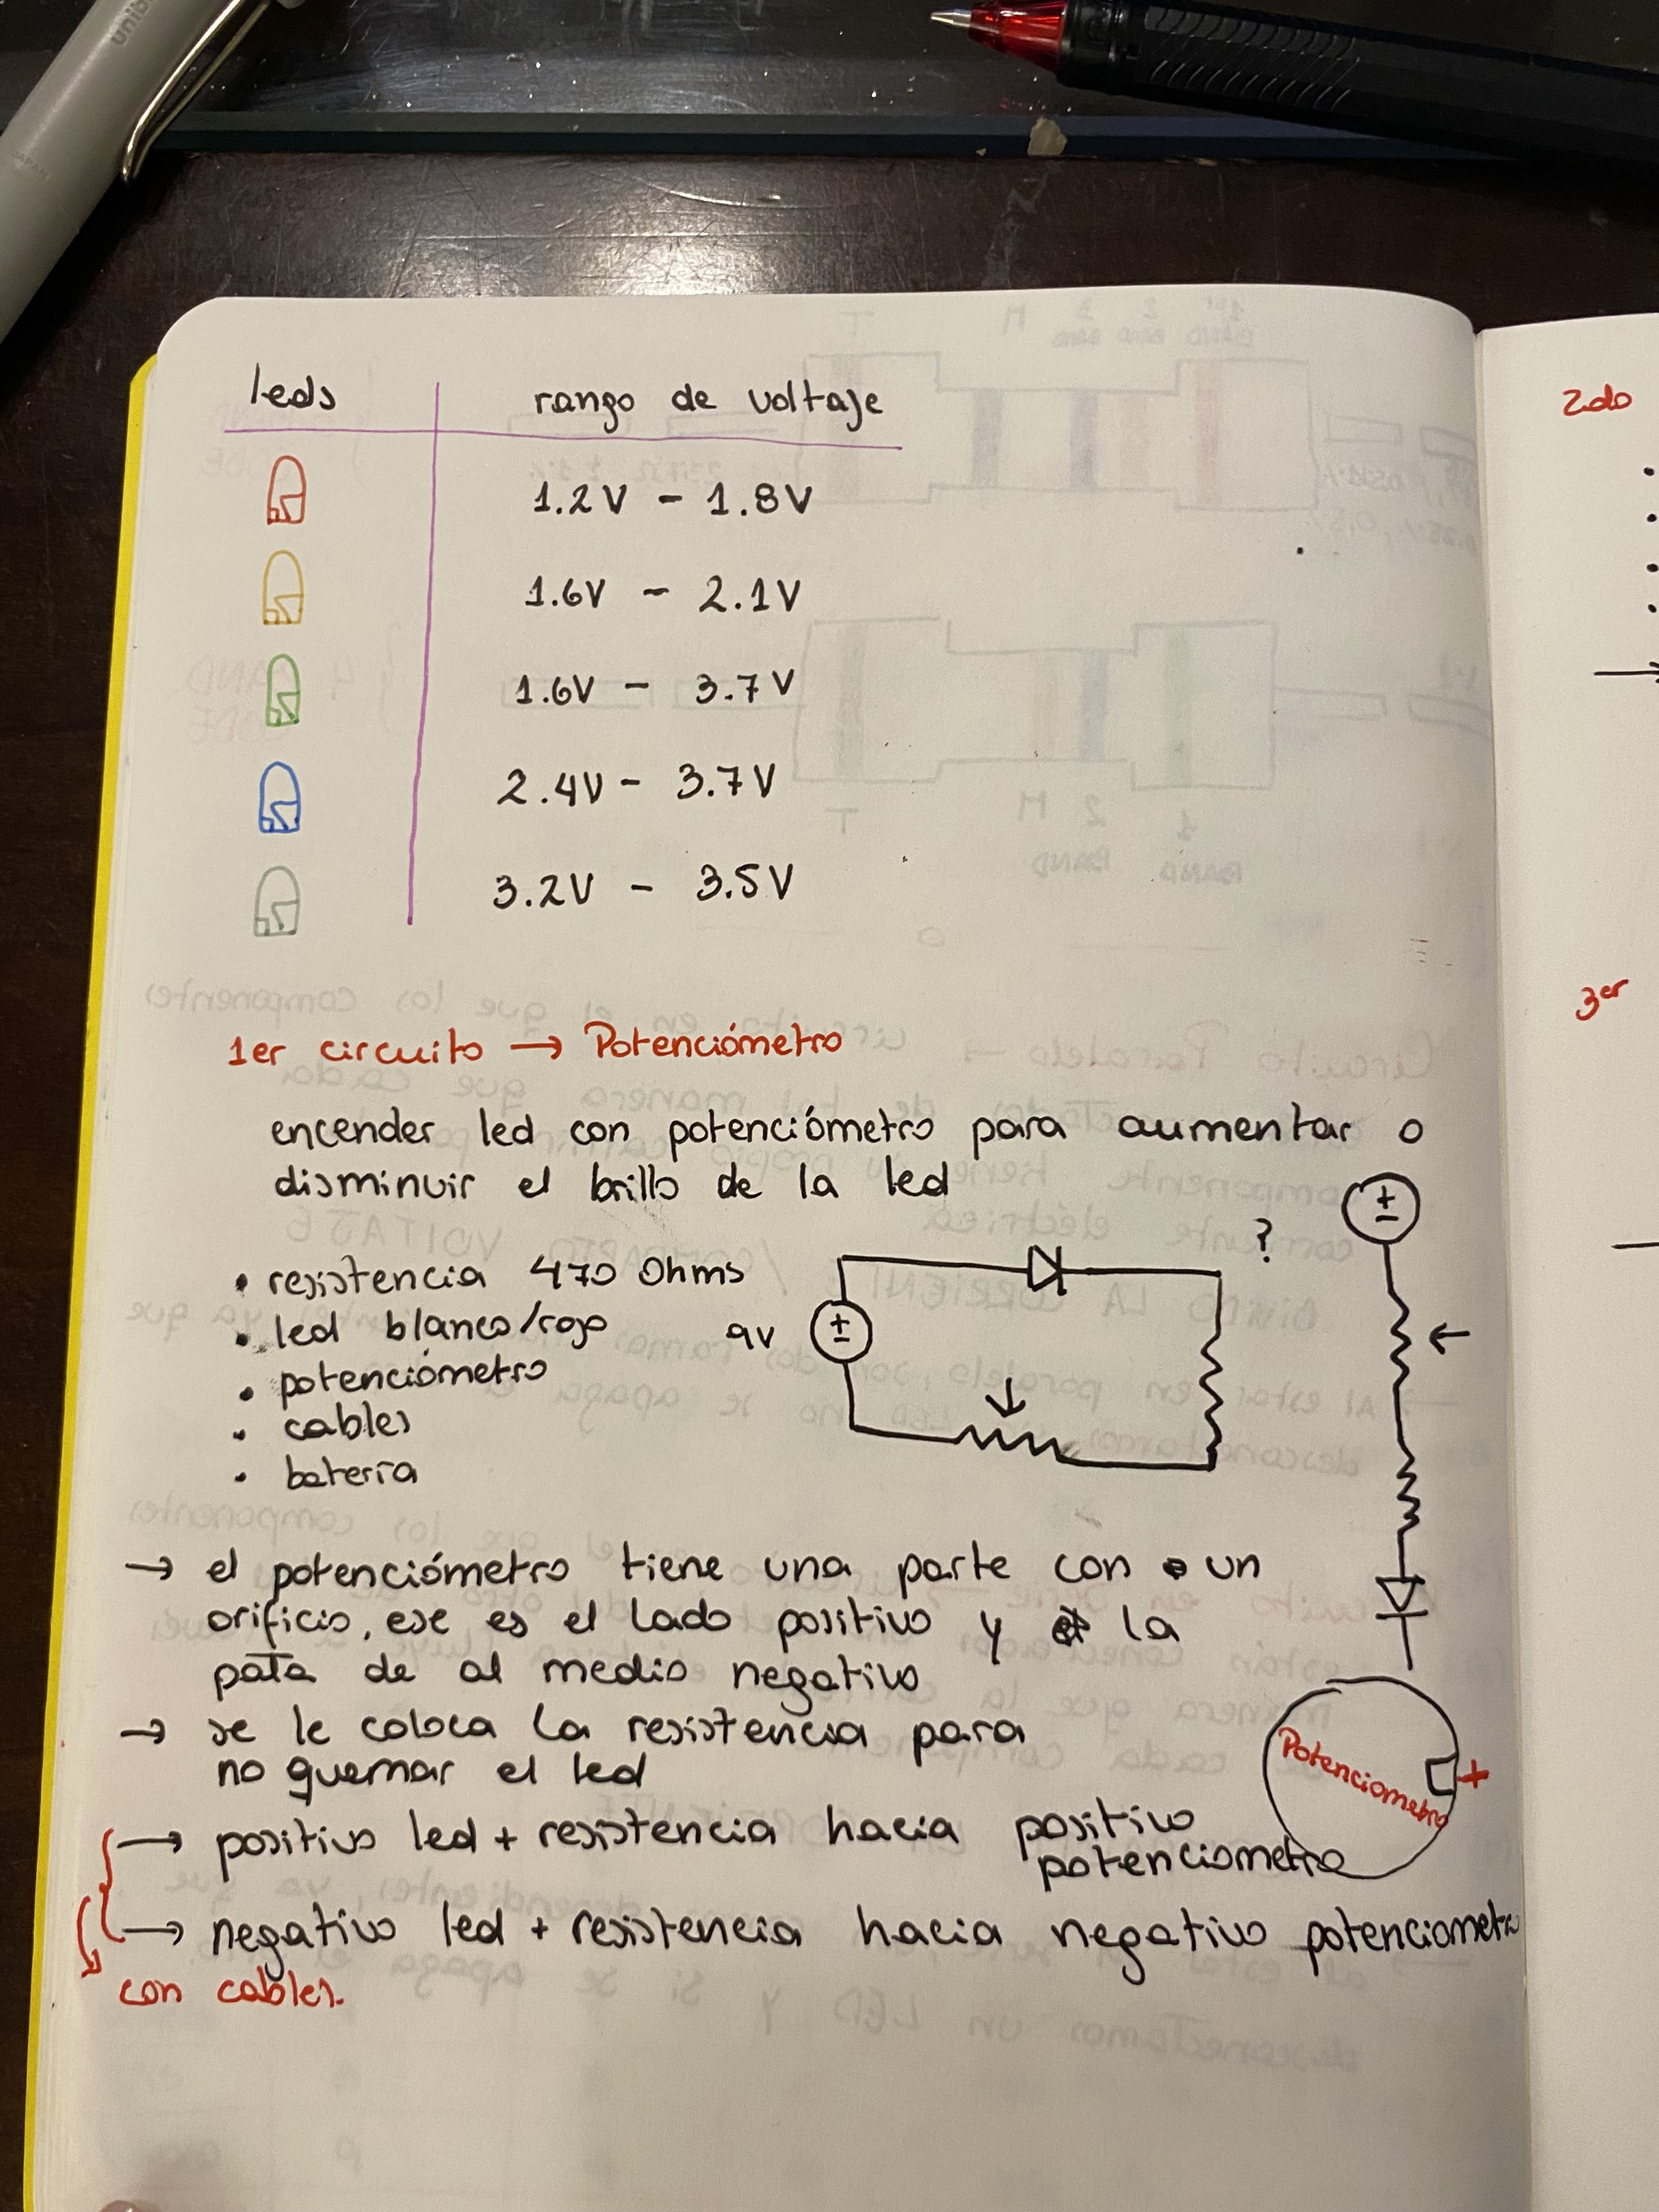 leds rango de voltaje
1.2V - 1.8V
1.6V - 2.1V
1.6V - 3.7V
2.4V - 3.7V
3.2V - 3.5V
1er circuito → Potenciómetro
encender led con potenciómetro para aumentar o
disminuir el brillo de la led
• resistencia 470 Ohms
• led blanco/rojo
• potenciómetro
• cables
• batería
9V
±
?
±
→ el potenciómetro tiene una parte con un
orificio, ese es el lado positivo y la
pata de al medio negativo
→ se le coloca la resistencia para
no quemar el led
Potenciometro +
→ positivo led + resistencia hacia positivo
potenciometro
→ negativo led + resistencia hacia negativo potenciometro
con cables.
2do
3er